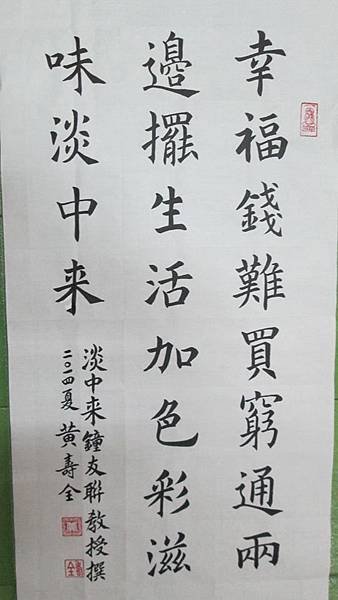 幸福錢難買窮通兩
邊擺生活加色彩滋
味淡中来
淡中来鐘友聯教授撰
二〇一四夏 黃壽全